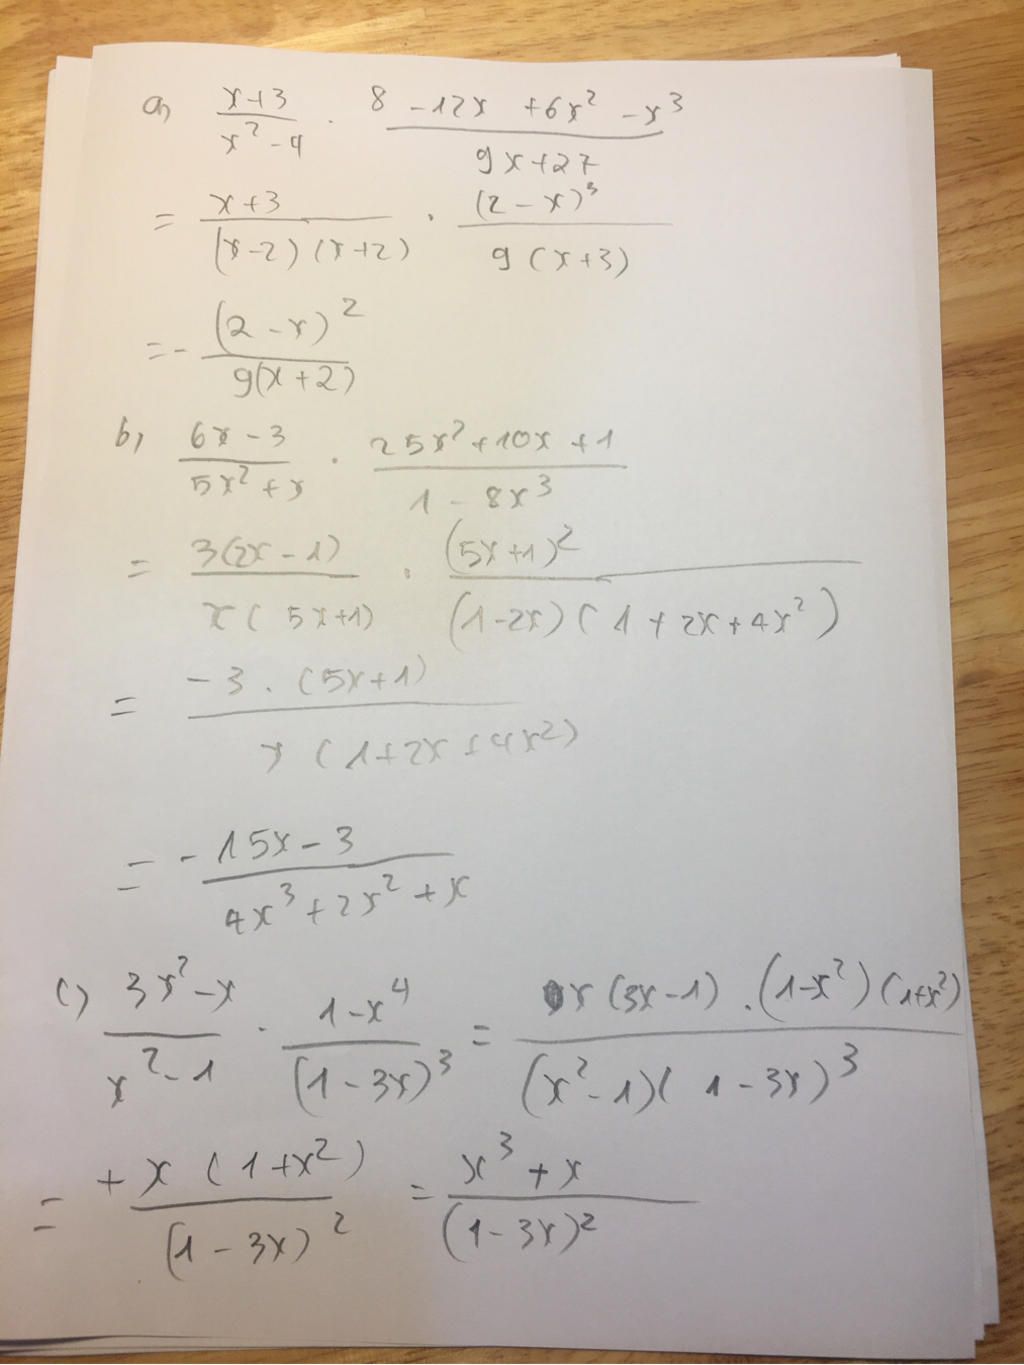 a) \frac{x+3}{x^2-4} \cdot \frac{8-12x+6x^2-x^3}{9x+27}
= \frac{x+3}{(x-2)(x+2)} \cdot \frac{(2-x)^3}{9(x+3)}
= - \frac{(2-x)^2}{9(x+2)}
b) \frac{6x-3}{5x^2+x} \cdot \frac{25x^2+10x+1}{1-8x^3}
= \frac{3(2x-1)}{x(5x+1)} \cdot \frac{(5x+1)^2}{(1-2x)(1+2x+4x^2)}
= \frac{-3 \cdot (5x+1)}{x(1+2x+4x^2)}
= \frac{-15x-3}{4x^3+2x^2+x}
c) \frac{3x^2-x}{x^2-1} \cdot \frac{1-x^4}{(1-3x)^3} = \frac{x(3x-1) \cdot (1-x^2)(1+x^2)}{(x^2-1)(1-3x)^3}
= \frac{+x(1+x^2)}{(1-3x)^2} = \frac{x^3+x}{(1-3x)^2}